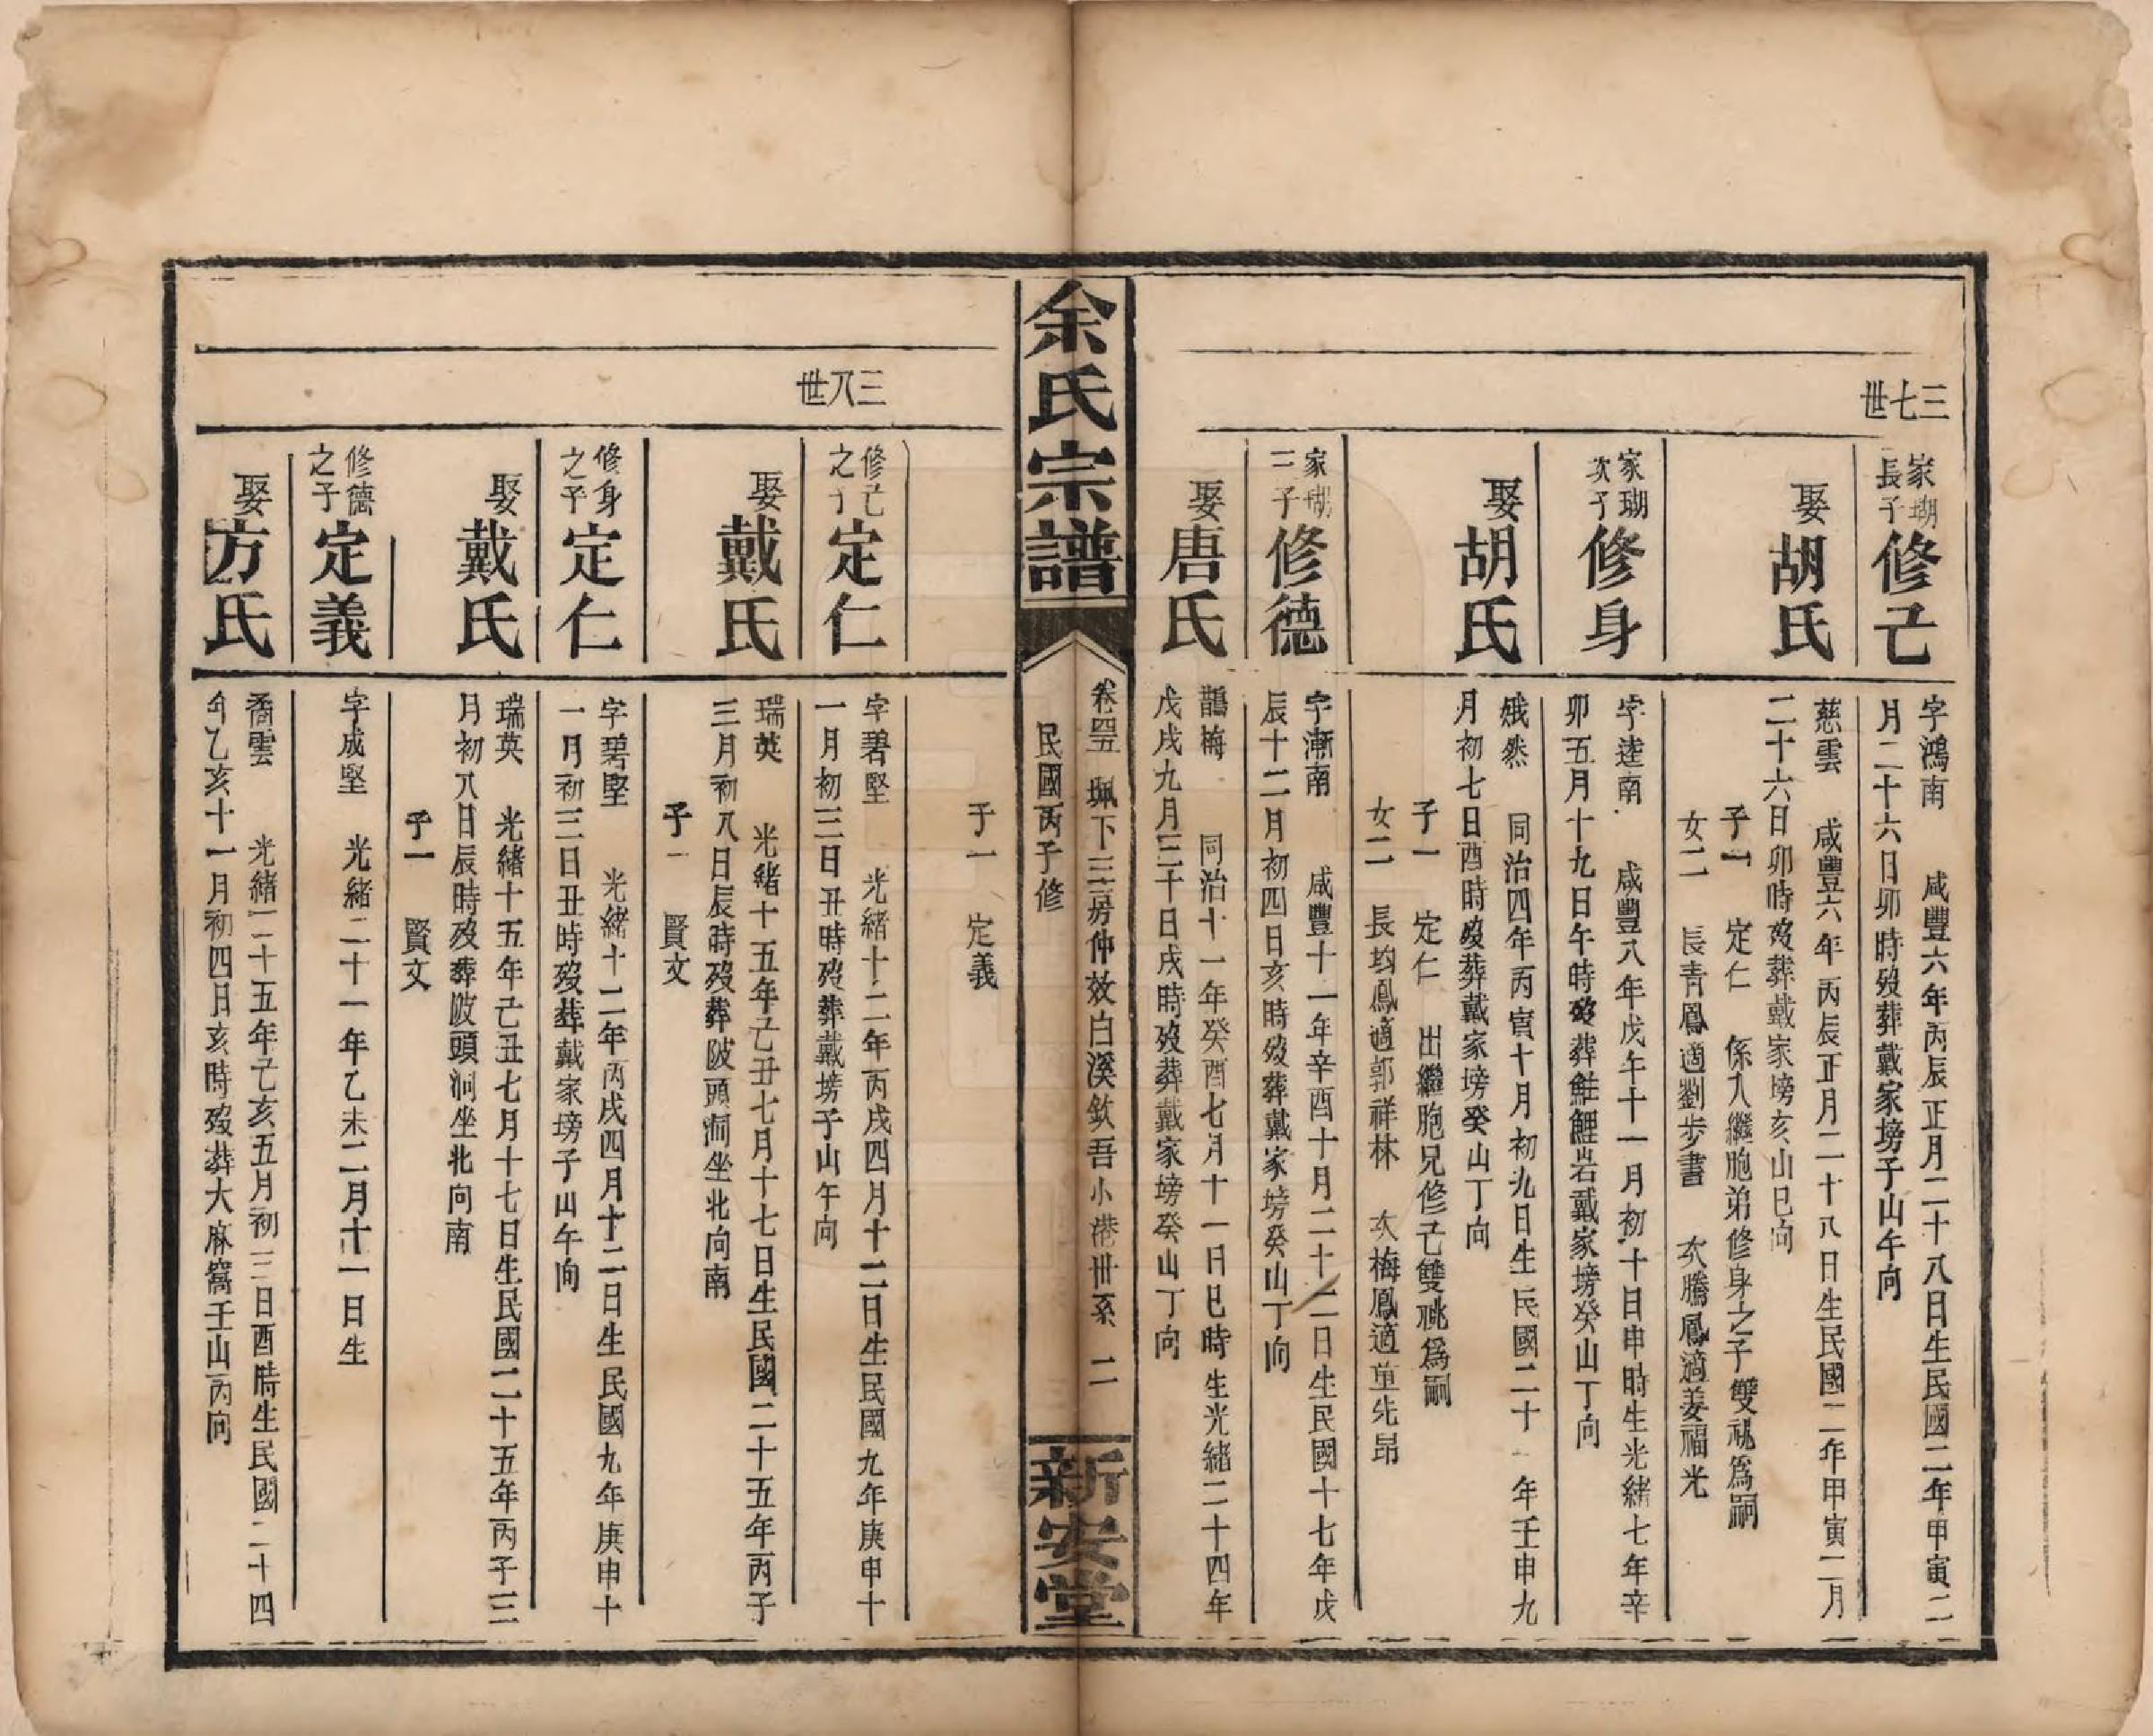 三七世
家瑚長子
修己
字鴻南　咸豐六年丙辰正月二十八日生民國二年甲寅二
月二十六日卯時殁葬戴家塝子山午向
娶胡氏
慈雲　咸豐六年丙辰正月二十八日生民國二年甲寅二月
二十六日卯時殁葬戴家塝亥山巳向
子一　定仁　係入繼胞弟修身之子雙祧爲嗣
女二　長青鳳適劉步書　次騰鳳適姜福光
家瑚次子
修身
字逵南　咸豐八年戊午十一月初十日申時生光緒七年辛
卯五月十九日午時殁葬鮭鯉岩戴家塝癸山丁向
娶胡氏
娥然　同治四年丙寅十月初九日生民國二十一年壬申九
月初七日酉時殁葬戴家塝癸山丁向
子一　定仁　出繼胞兄修己雙祧爲嗣
女二　長均鳳適郭祥林　次梅鳳適童先昂
家瑚三子
修德
字漸南　咸豐十一年辛酉十月二十二日生民國十七年戊
辰十二月初四日亥時殁葬戴家塝癸山丁向
娶唐氏
鵲梅　同治十一年癸酉七月十一日巳時生光緒二十四年
戊戌九月三十日戌時殁葬戴家塝癸山丁向
余氏宗譜
卷四五　珮下三房仲效白溪欽吾小港世系　二
民國丙子修
新安堂
子一　定義
三八世
修己之子
定仁
字碧堅　光緒十二年丙戌四月十二日生民國九年庚申十
一月初三日丑時殁葬戴塝子山午向
娶戴氏
瑞英　光緒十五年己丑七月十七日生民國二十五年丙子
三月初八日辰時殁葬陂頭洞坐北向南
子一　賢文
修身之子
定仁
字碧堅　光緒十二年丙戌四月十二日生民國九年庚申十
一月初三日丑時殁葬戴家塝子山午向
娶戴氏
瑞英　光緒十五年己丑七月十七日生民國二十五年丙子三
月初八日辰時殁葬陂頭洞坐北向南
子一　賢文
修德之子
定義
字成堅　光緒二十一年乙未二月十一日生
娶方氏
喬雲　光緒二十五年己亥五月初三日酉時生民國二十四
年乙亥十一月初四日亥時殁葬大麻窩壬山丙向